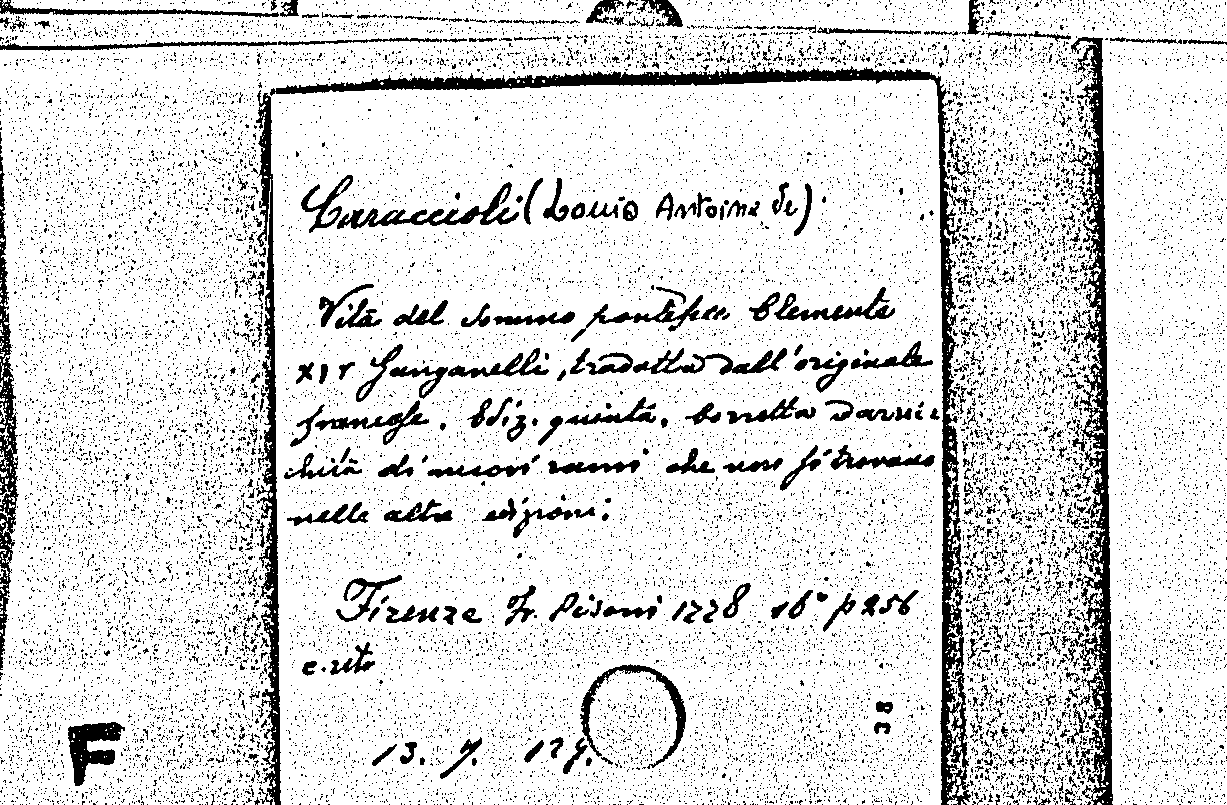 Caraccioli (Louis Antoine de)
Vita del sommo pontefice Clemente
XIV Ganganelli, tradotta dall'originale
francese. Ediz. quinta, corretta ed arric
chita di nuovi rami che non si trovano
nelle altre edizioni.
Firenze Fr. Pisoni 1778 16° p 256
c. rit
38
13. 7. 129.
F